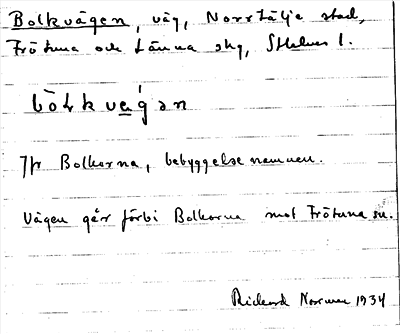 Bolkvägen, väg, Norrtälje stad,
Frötuna och Länna skg, Sthlms l.
bòlkvegən
Jfr Bolkorna, bebyggelsenamnen.
Vägen går förbi Bolkorna mot Frötuna sn.
Rickard Norman 1934